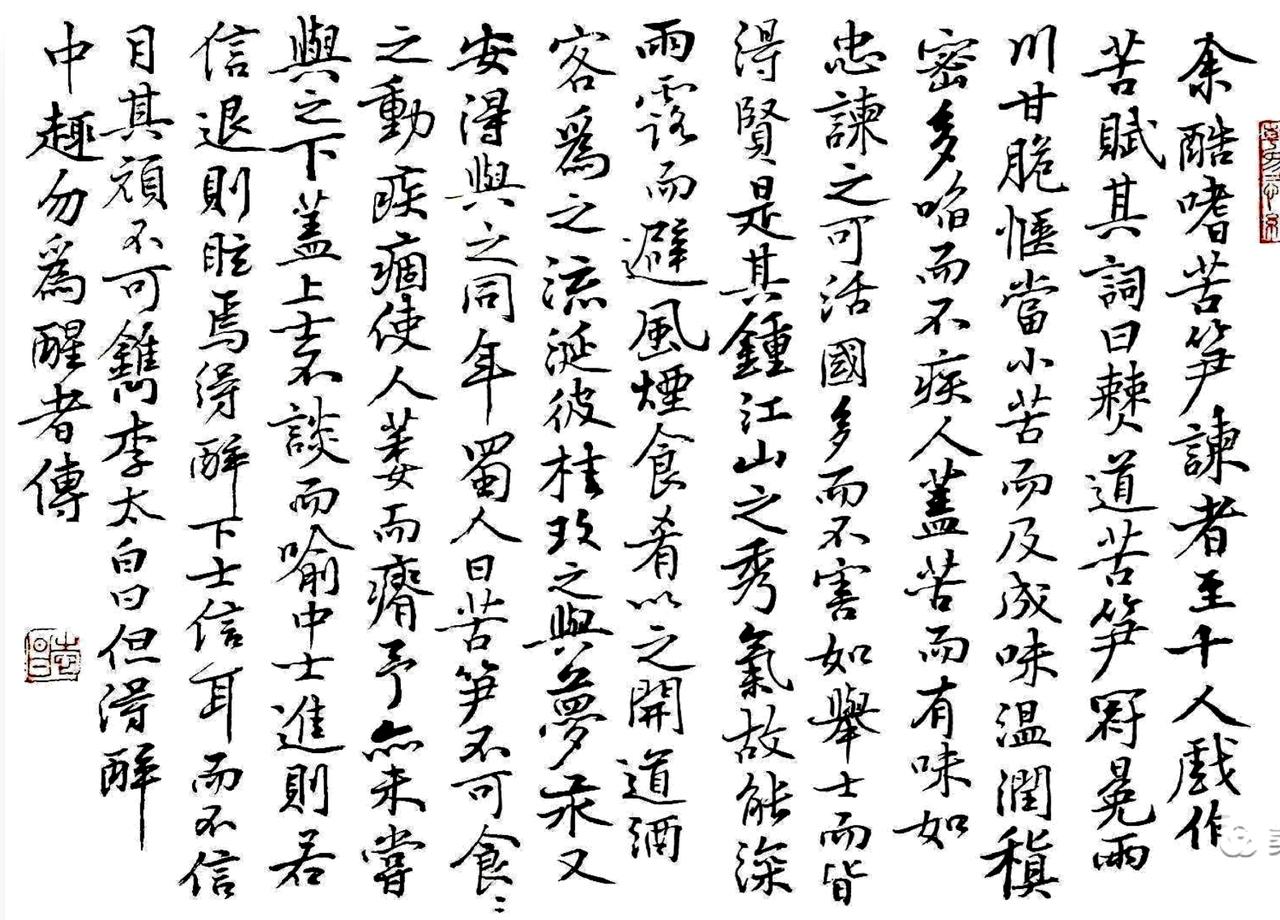 余酷嗜苦笋諫者至十人戲作
苦賦其詞曰僰道苦笋冠冕兩
川甘脆愜當小苦而及成味溫潤稹
密多啗而不疾人蓋苦而有味如
忠諫之可活國多而不害如舉士而皆
得賢是其鍾江山之秀氣故能深
雨露而避風煙食肴以之開道酒
客爲之流涎彼桂玫之與夢汞又
安得與之同年蜀人曰苦笋不可食〻
之動疾痼使人萎而瘠予亦未嘗
與之下蓋上士不談而喻中士進則若
信退則眩焉得醉下士信耳而不信
目其頑不可鐫李太白曰但得醉
中趣勿爲醒者傳